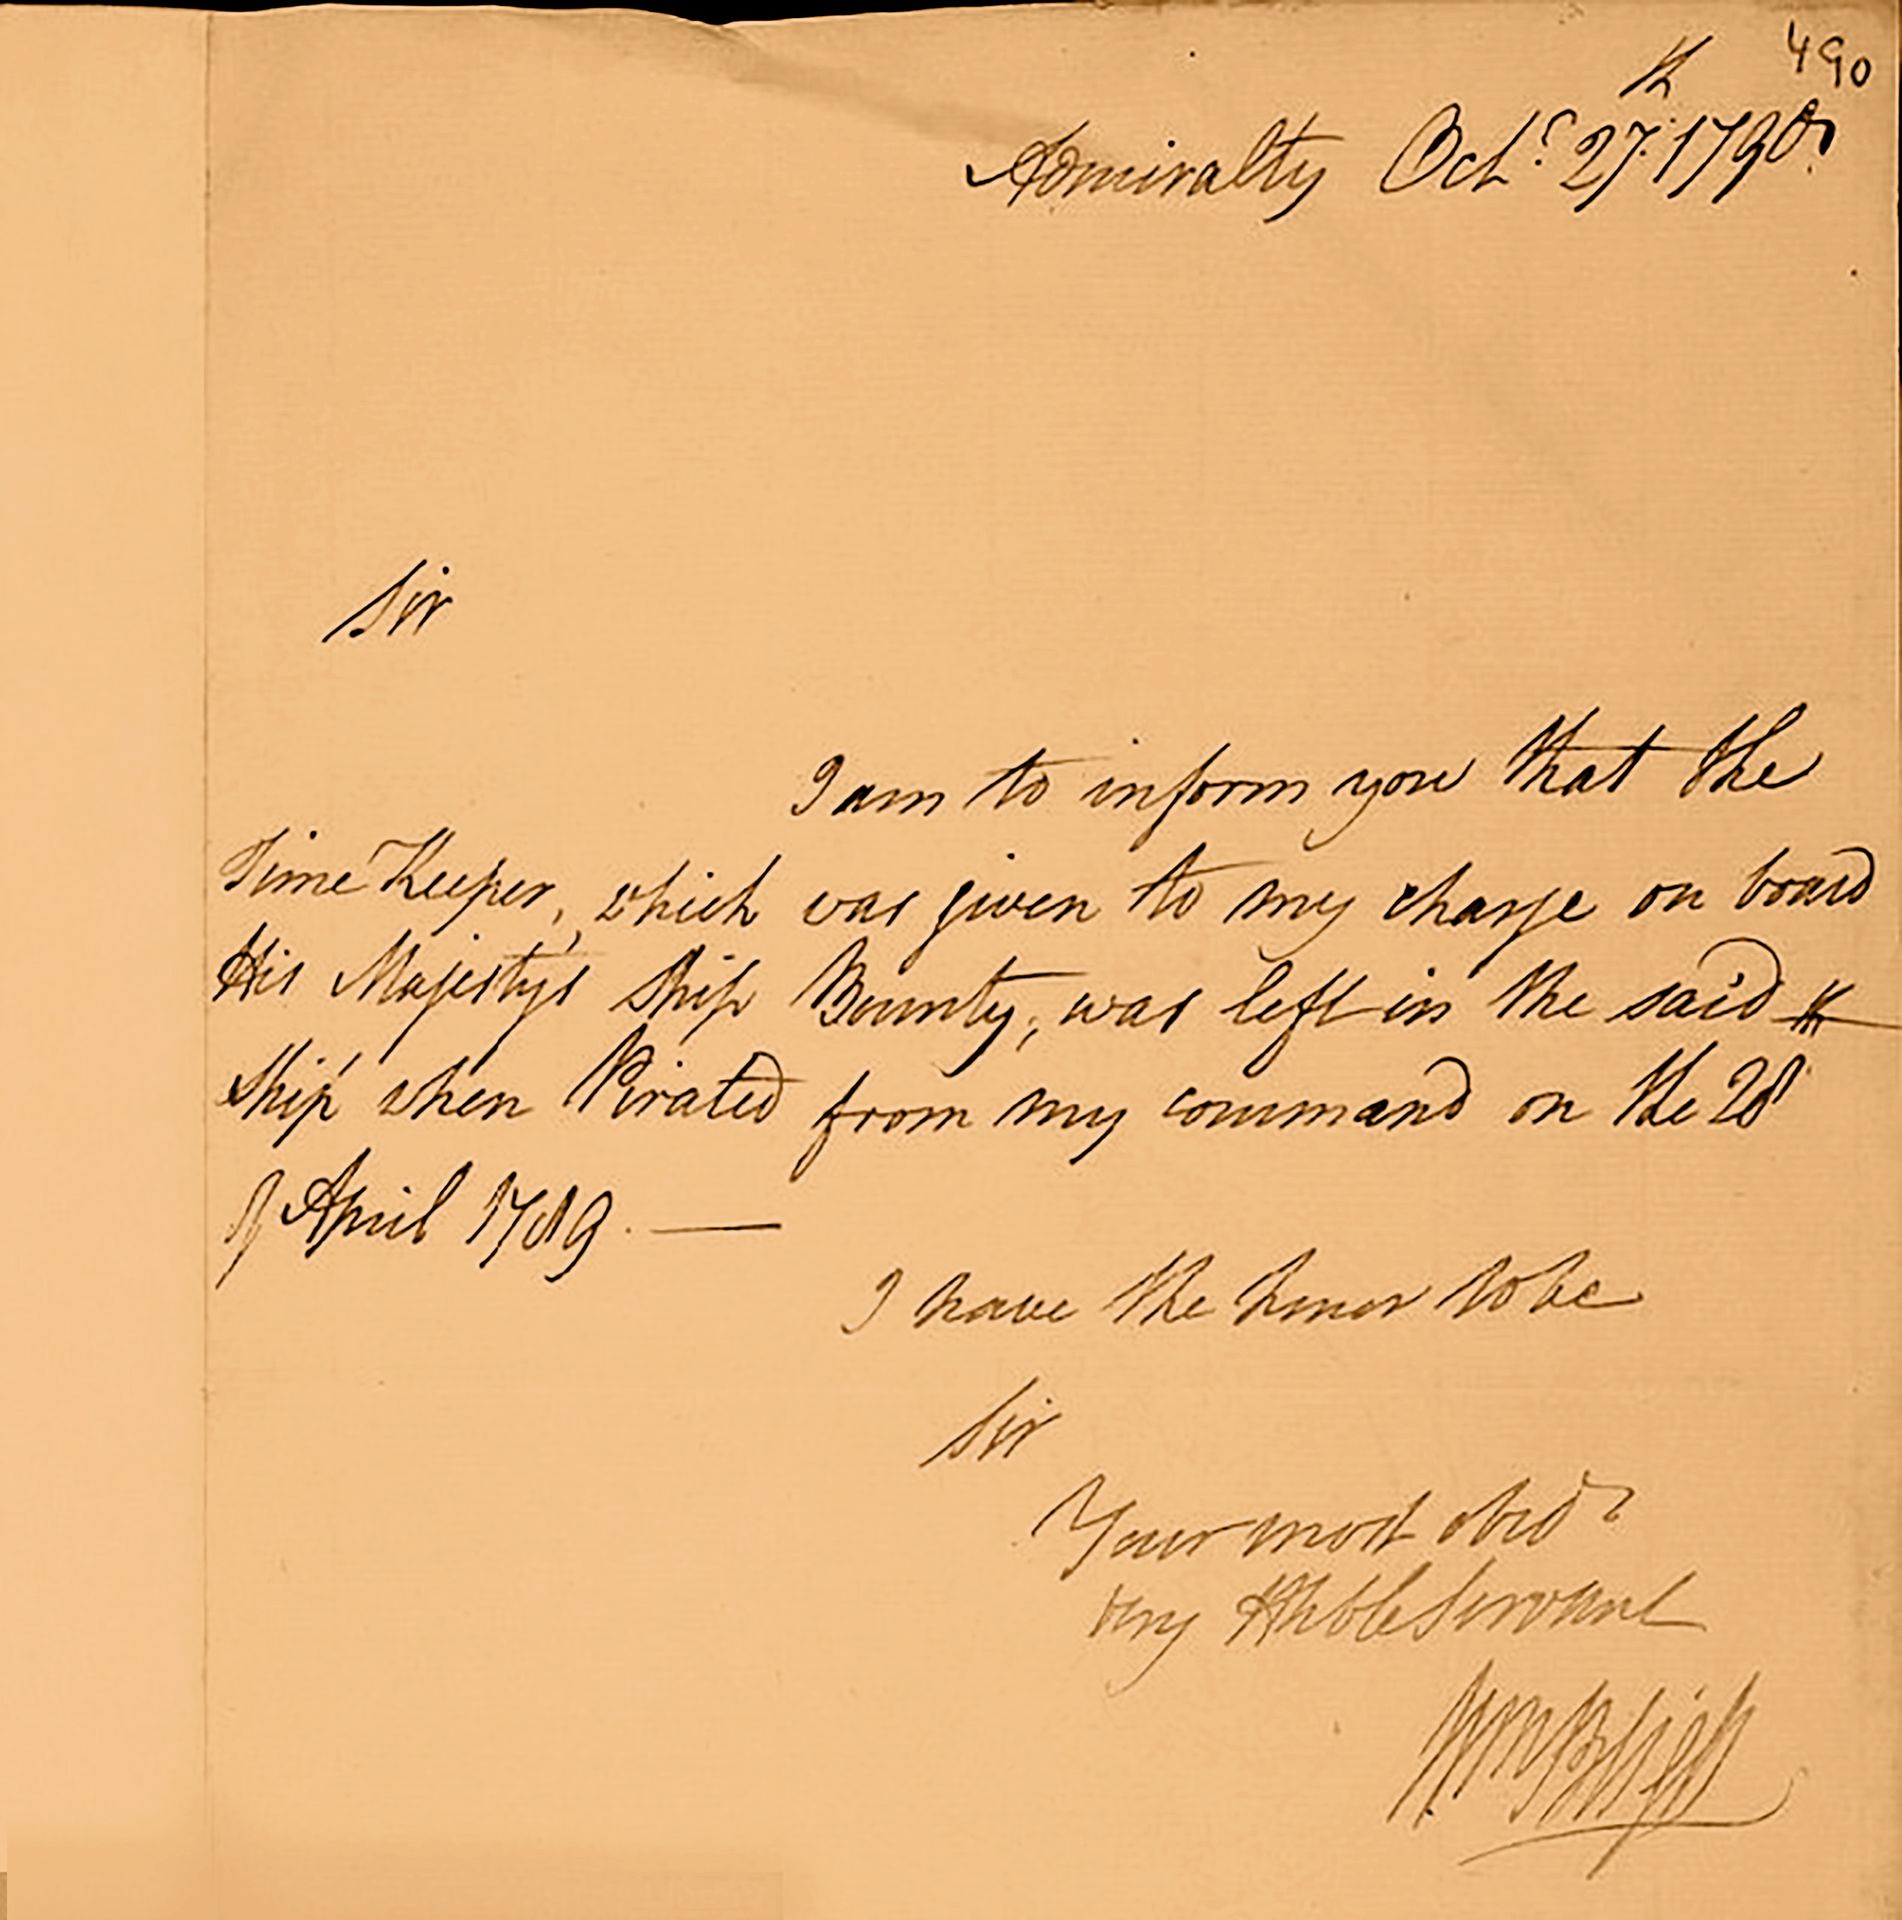 490
Admiralty Octr. 27th. 1790.
Sir
I am to inform you that the
Time Keeper, which was given to my charge on board
His Majesty's Ship Bounty, was left in the said
Ship when Pirated from my command on the 28th
of April 1789. —
I have the honor to be
Sir
Your most obedt
very Hble Servant
Wm Bligh